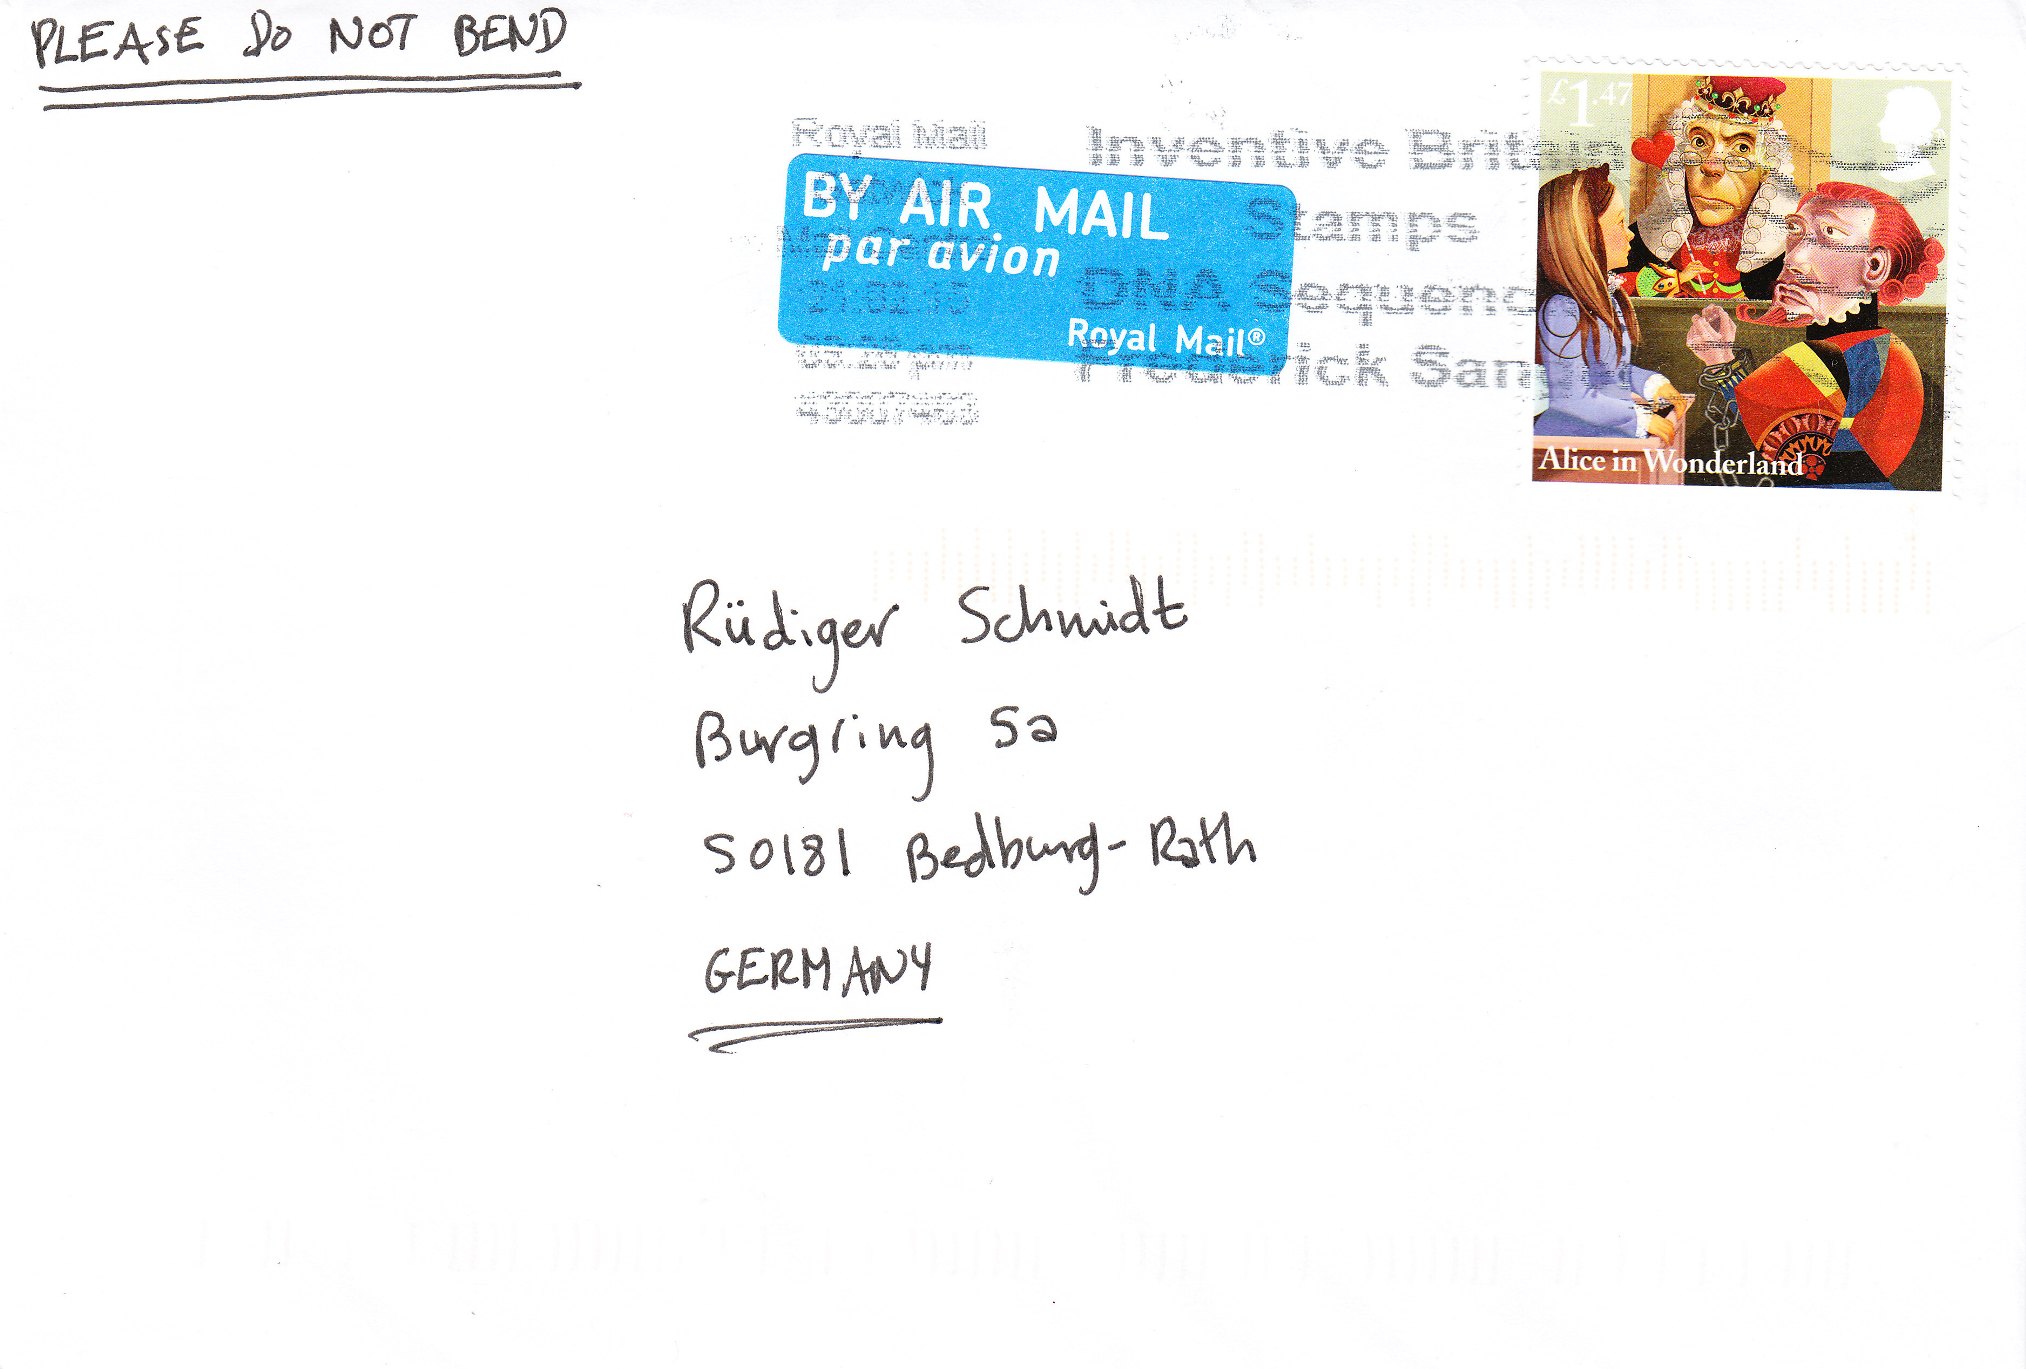 PLEASE DO NOT BEND
Royal Mail
Inventive Britain
Stamps
DNA Sequenc
Frederick San
BY AIR MAIL
par avion
Royal Mail®
£1.47
Alice in Wonderland
Rüdiger Schmidt
Burgring 5a
50181 Bedburg-Rath
GERMANY